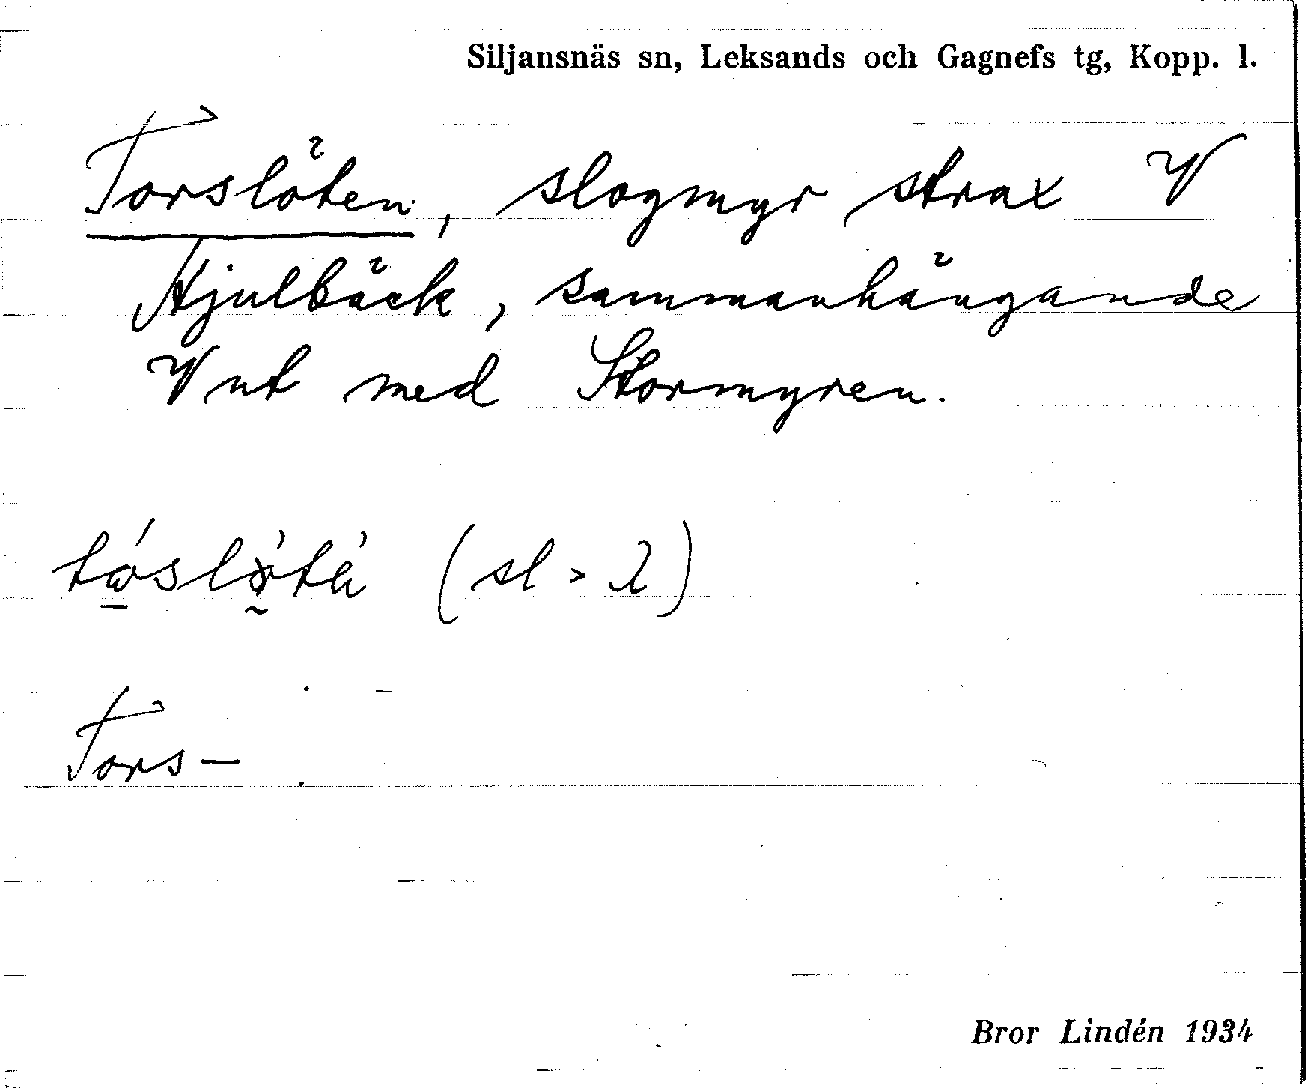 Siljansnäs sn, Leksands och Gagnefs tg, Kopp. l.
Torslöten, slogmyr strax V
Hjulbäck, sammanhängande
V ut med Stormyren.
(sl > λ)
Tors-
Bror Lindén 1934